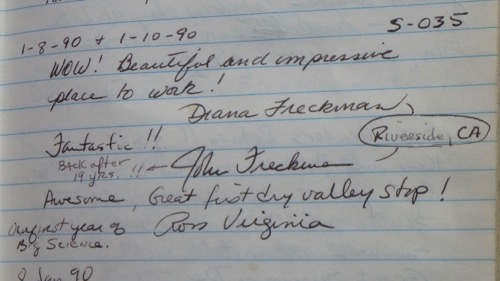 S-035
1-8-90 + 1-10-90
WOW! Beautiful and impressive
place to work!
Diana Freckman
Riverside, CA
Fantastic!!
Back after
19 yrs. !! ← John Freckman
Awesome, Great first dry valley stop!
Our first year of
Big Science.
Ross Virginia
Jan 90